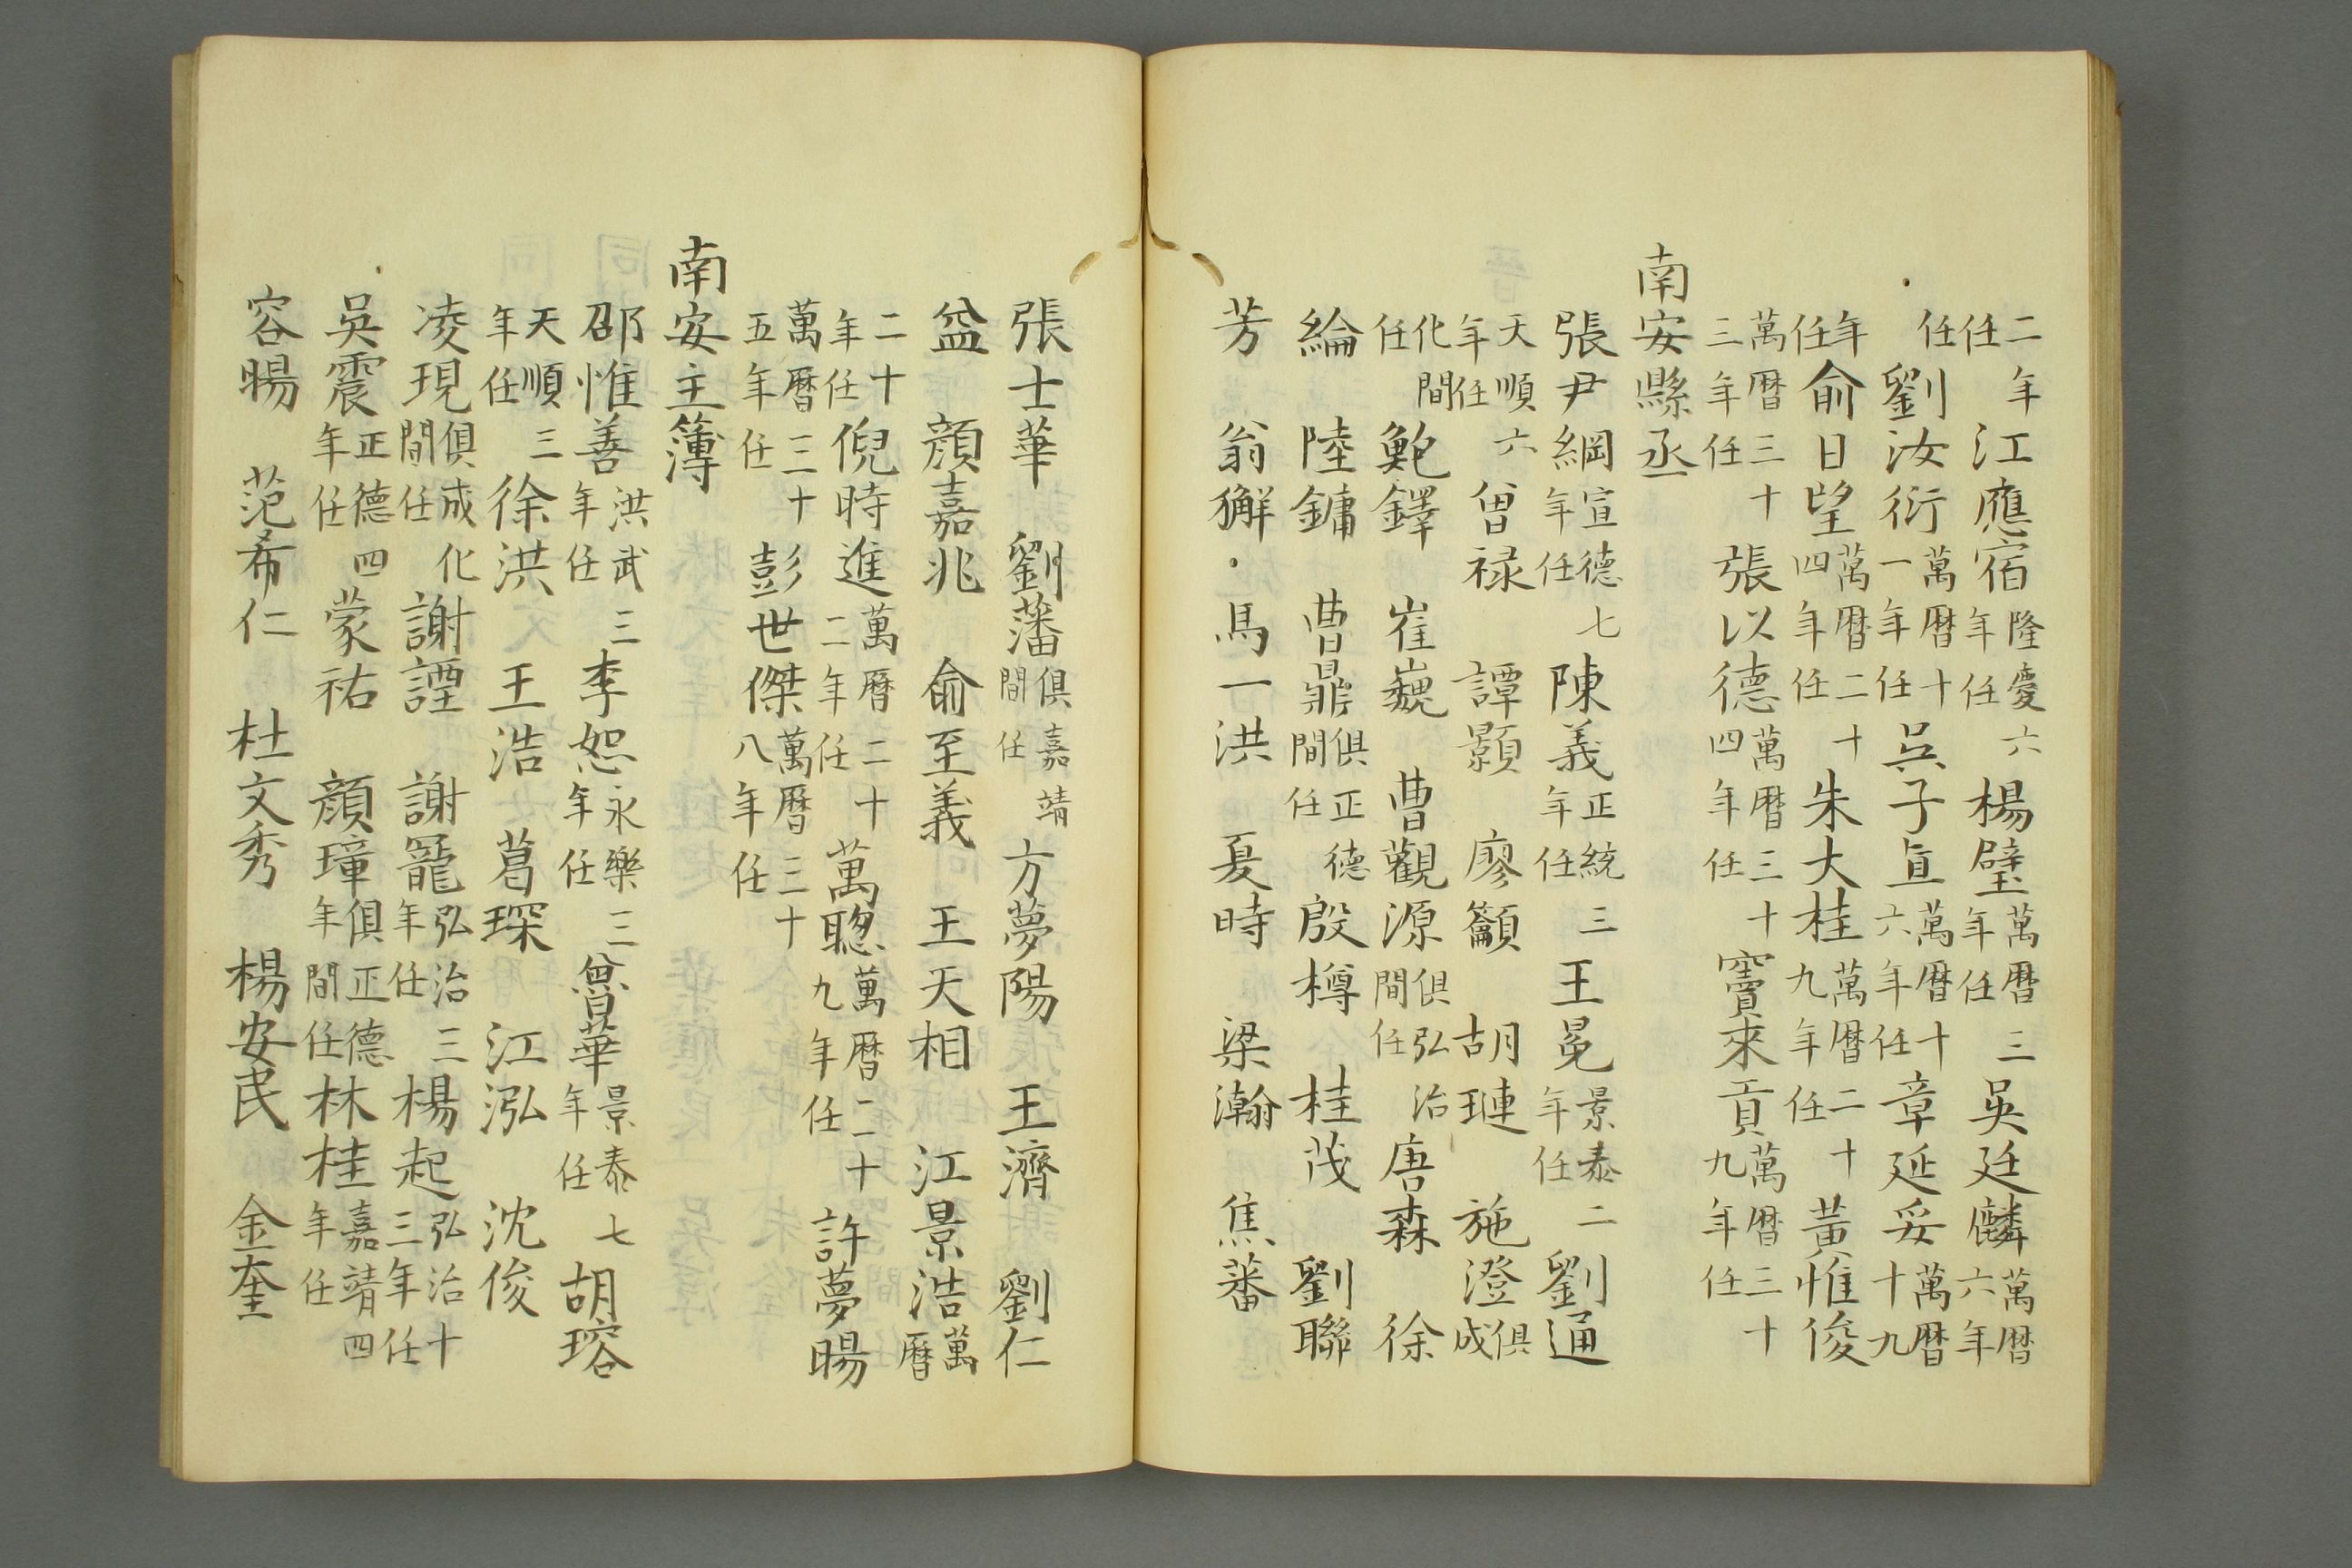 二年任江應宿隆慶六年任楊璧萬曆三年任吳廷麟萬曆六年
任劉汝衍萬曆十一年任吳子直萬曆十六年任章延妥萬曆十九
年任俞日望萬曆二十四年任朱大桂萬曆二十九年任黃惟俊
萬曆三十三年任張以德萬曆三十四年任竇來貢萬曆三十九年任
南安縣丞
張尹綱宣德七年任陳義正統三年任王冕景泰二年任劉通
天順六年任曾禄 譚顥 廖籲 胡璉 施澄俱成
化間任鮑鐸 崔巍 曹觀源俱弘治間任唐森 徐
綸 陸鏞 曹鼎俱正德間任殷樽 桂茂 劉聯
芳 翁獬 馬一洪 夏時 梁瀚 焦蕃
張士華 劉藩俱嘉靖間任方夢陽 王濟 劉仁
益 顏嘉兆 俞至義 王天相 江景浩萬曆
二十年任倪時進萬曆二十二年任萬聰萬曆二十九年任許夢暘
萬曆三十五年任彭世傑萬曆三十八年任
南安主簿
邵惟善洪武三年任李恕永樂三年任曾華景泰七年任胡瑢
天順三年任徐洪 王浩 葛琛 江泓 沈俊
凌現俱成化間任謝譚 謝寵弘治三年任楊起弘治十三年任
吳震正德四年任蒙祐 顏璋俱正德年間任林桂嘉靖四年任
容暘 范希仁 杜文秀 楊安民 金奎